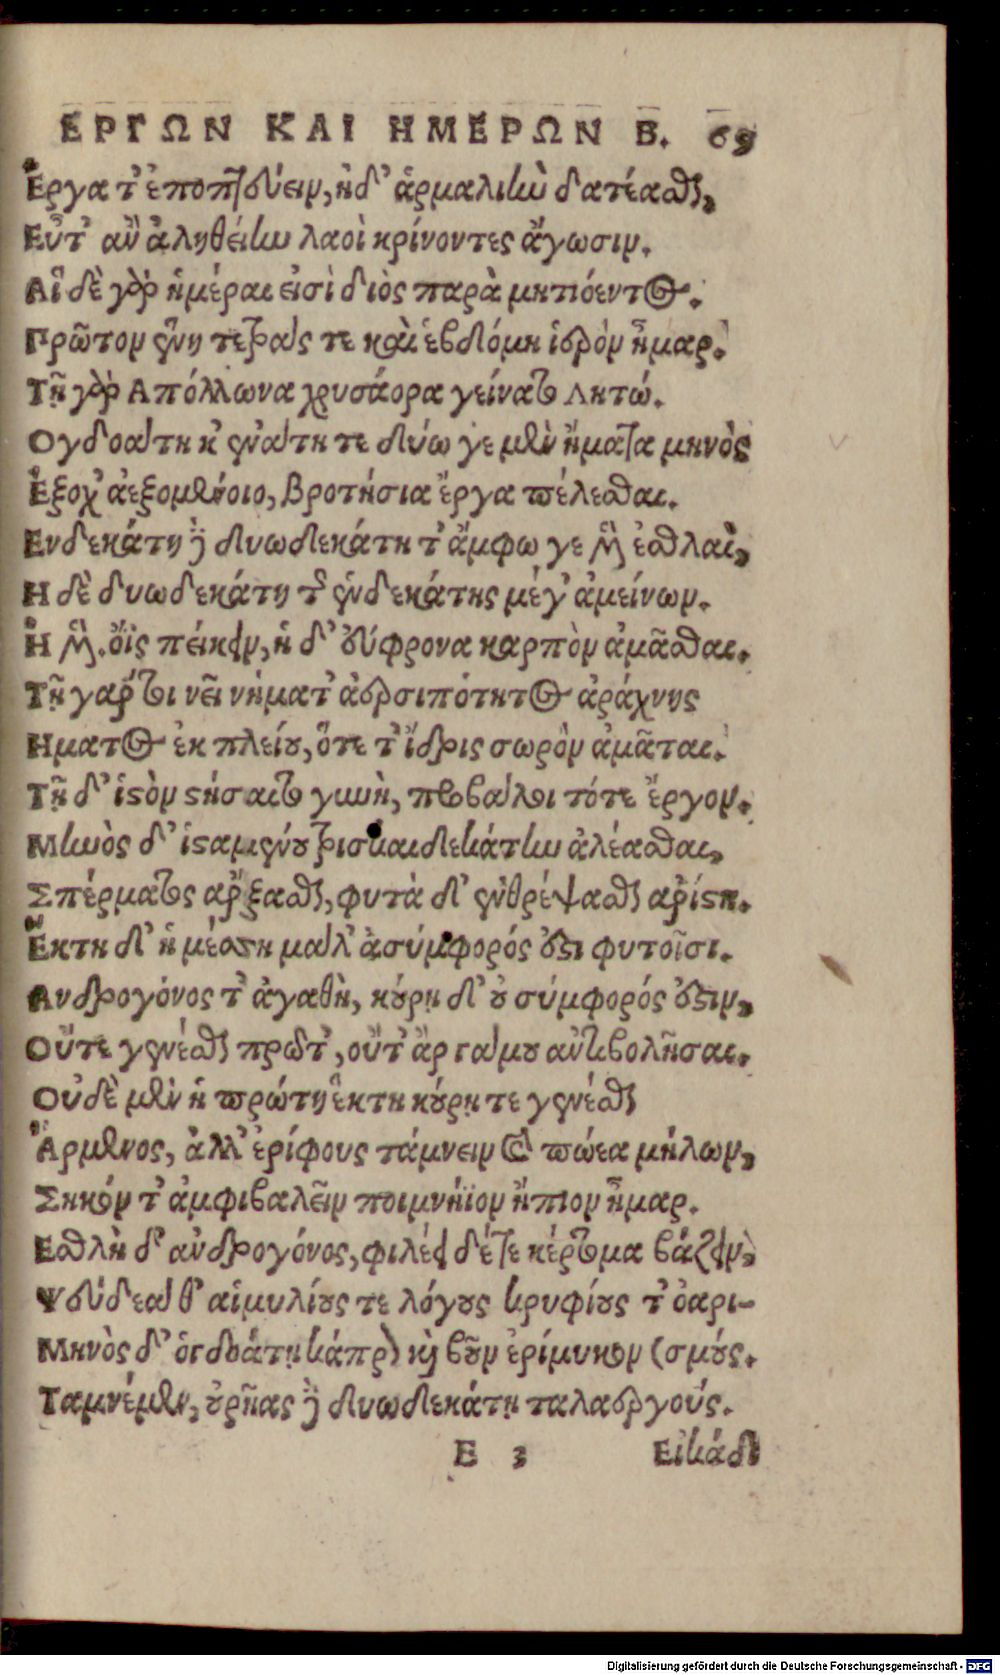 ΕΡΓΩΝ ΚΑΙ ΗΜΕΡΩΝ Β. 69
Ἔργα τ' ἐποπτεύειν, ἠδ' ἁρμαλιὴν δατέασθαι,
Εὖτ' ἂν ἀληθείην λαοὶ κρίνοντες ἄγωσιν.
Αἵ δὲ γὰρ ἡμέραι εἰσὶ διὸς παρὰ μητιόεντος.
Πρῶτον ἕνη τετράς τε καὶ ἑβδόμη ἱερὸν ἦμαρ.
Τῇ γὰρ Απόλλωνα χρυσάορα γείνατο Λητώ.
Ογδοάτη κ' ἐνάτη τε δύω γε μὲν ἤματα μηνὸς
Ἔξοχ' ἀεξομένοιο, βροτήσια ἔργα πέλεσθαι.
Ενδεκάτη δὲ δυωδεκάτη τ' ἄμφω γε μὲν ἐσθλαὶ,
Η δὲ δυωδεκάτη τῆς ἑνδεκάτης μέγ' ἀμείνων.
Ἢ μὲν. ὄϊς πείκειν, ἡ δ' εὔφρονα καρπὸν ἀμᾶσθαι.
Τῇ γάρ τοι νεῖ νήματ' ἀερσιπότητος ἀράχνης
Ηματος ἐκ πλείου, ὅτε τ' ἴδρις σωρὸν ἀμᾶται.
Τῇ δ' ἱστὸν στήσαιτο γυνὴ, προβάλοι τότε ἔργον.
Μηνὸς δ' ἱσταμένου τρισκαιδεκάτην ἀλέασθαι,
Σπέρματος ἄρξασθαι, φυτὰ δ' ἐνθρέψασθαι ἀρίστη.
Ἕκτη δ' ἡ μέσση μάλ' ἀσύμφορός ἐστι φυτοῖσι.
Ανδρογόνος τ' ἀγαθὴ, κούρῃ δ' οὐ σύμφορός ἐστιν,
Οὔτε γενέσθαι πρῶτ', οὔτ' ἂρ γάμου ἀντιβολῆσαι.
Οὐδὲ μὲν ἡ πρώτη ἕκτη κούρῃ τε γενέσθαι
Ἄρμενος, ἀλλ' ἐρίφους τάμνειν καὶ πώεα μήλων,
Σηκόν τ' ἀμφιβαλεῖν ποιμνήϊον ἤπιον ἦμαρ.
Εσθλὴ δ' ἀνδρογόνος, φιλέει δέ τε κέρτομα βάζειν,
Ψεύδεά θ' αἱμυλίους τε λόγους κρυφίους τ' ὀαρι-
Μηνὸς δ' ὀγδοάτῃ κάπρον καὶ βοῦν ἐρίμυκον (σμούς.
Ταμνέμεν, οὐρῆας δὲ δυωδεκάτῃ ταλαεργούς.
E 3 Εἰκάδι
Digitalisierung gefördert durch die Deutsche Forschungsgemeinschaft - DFG